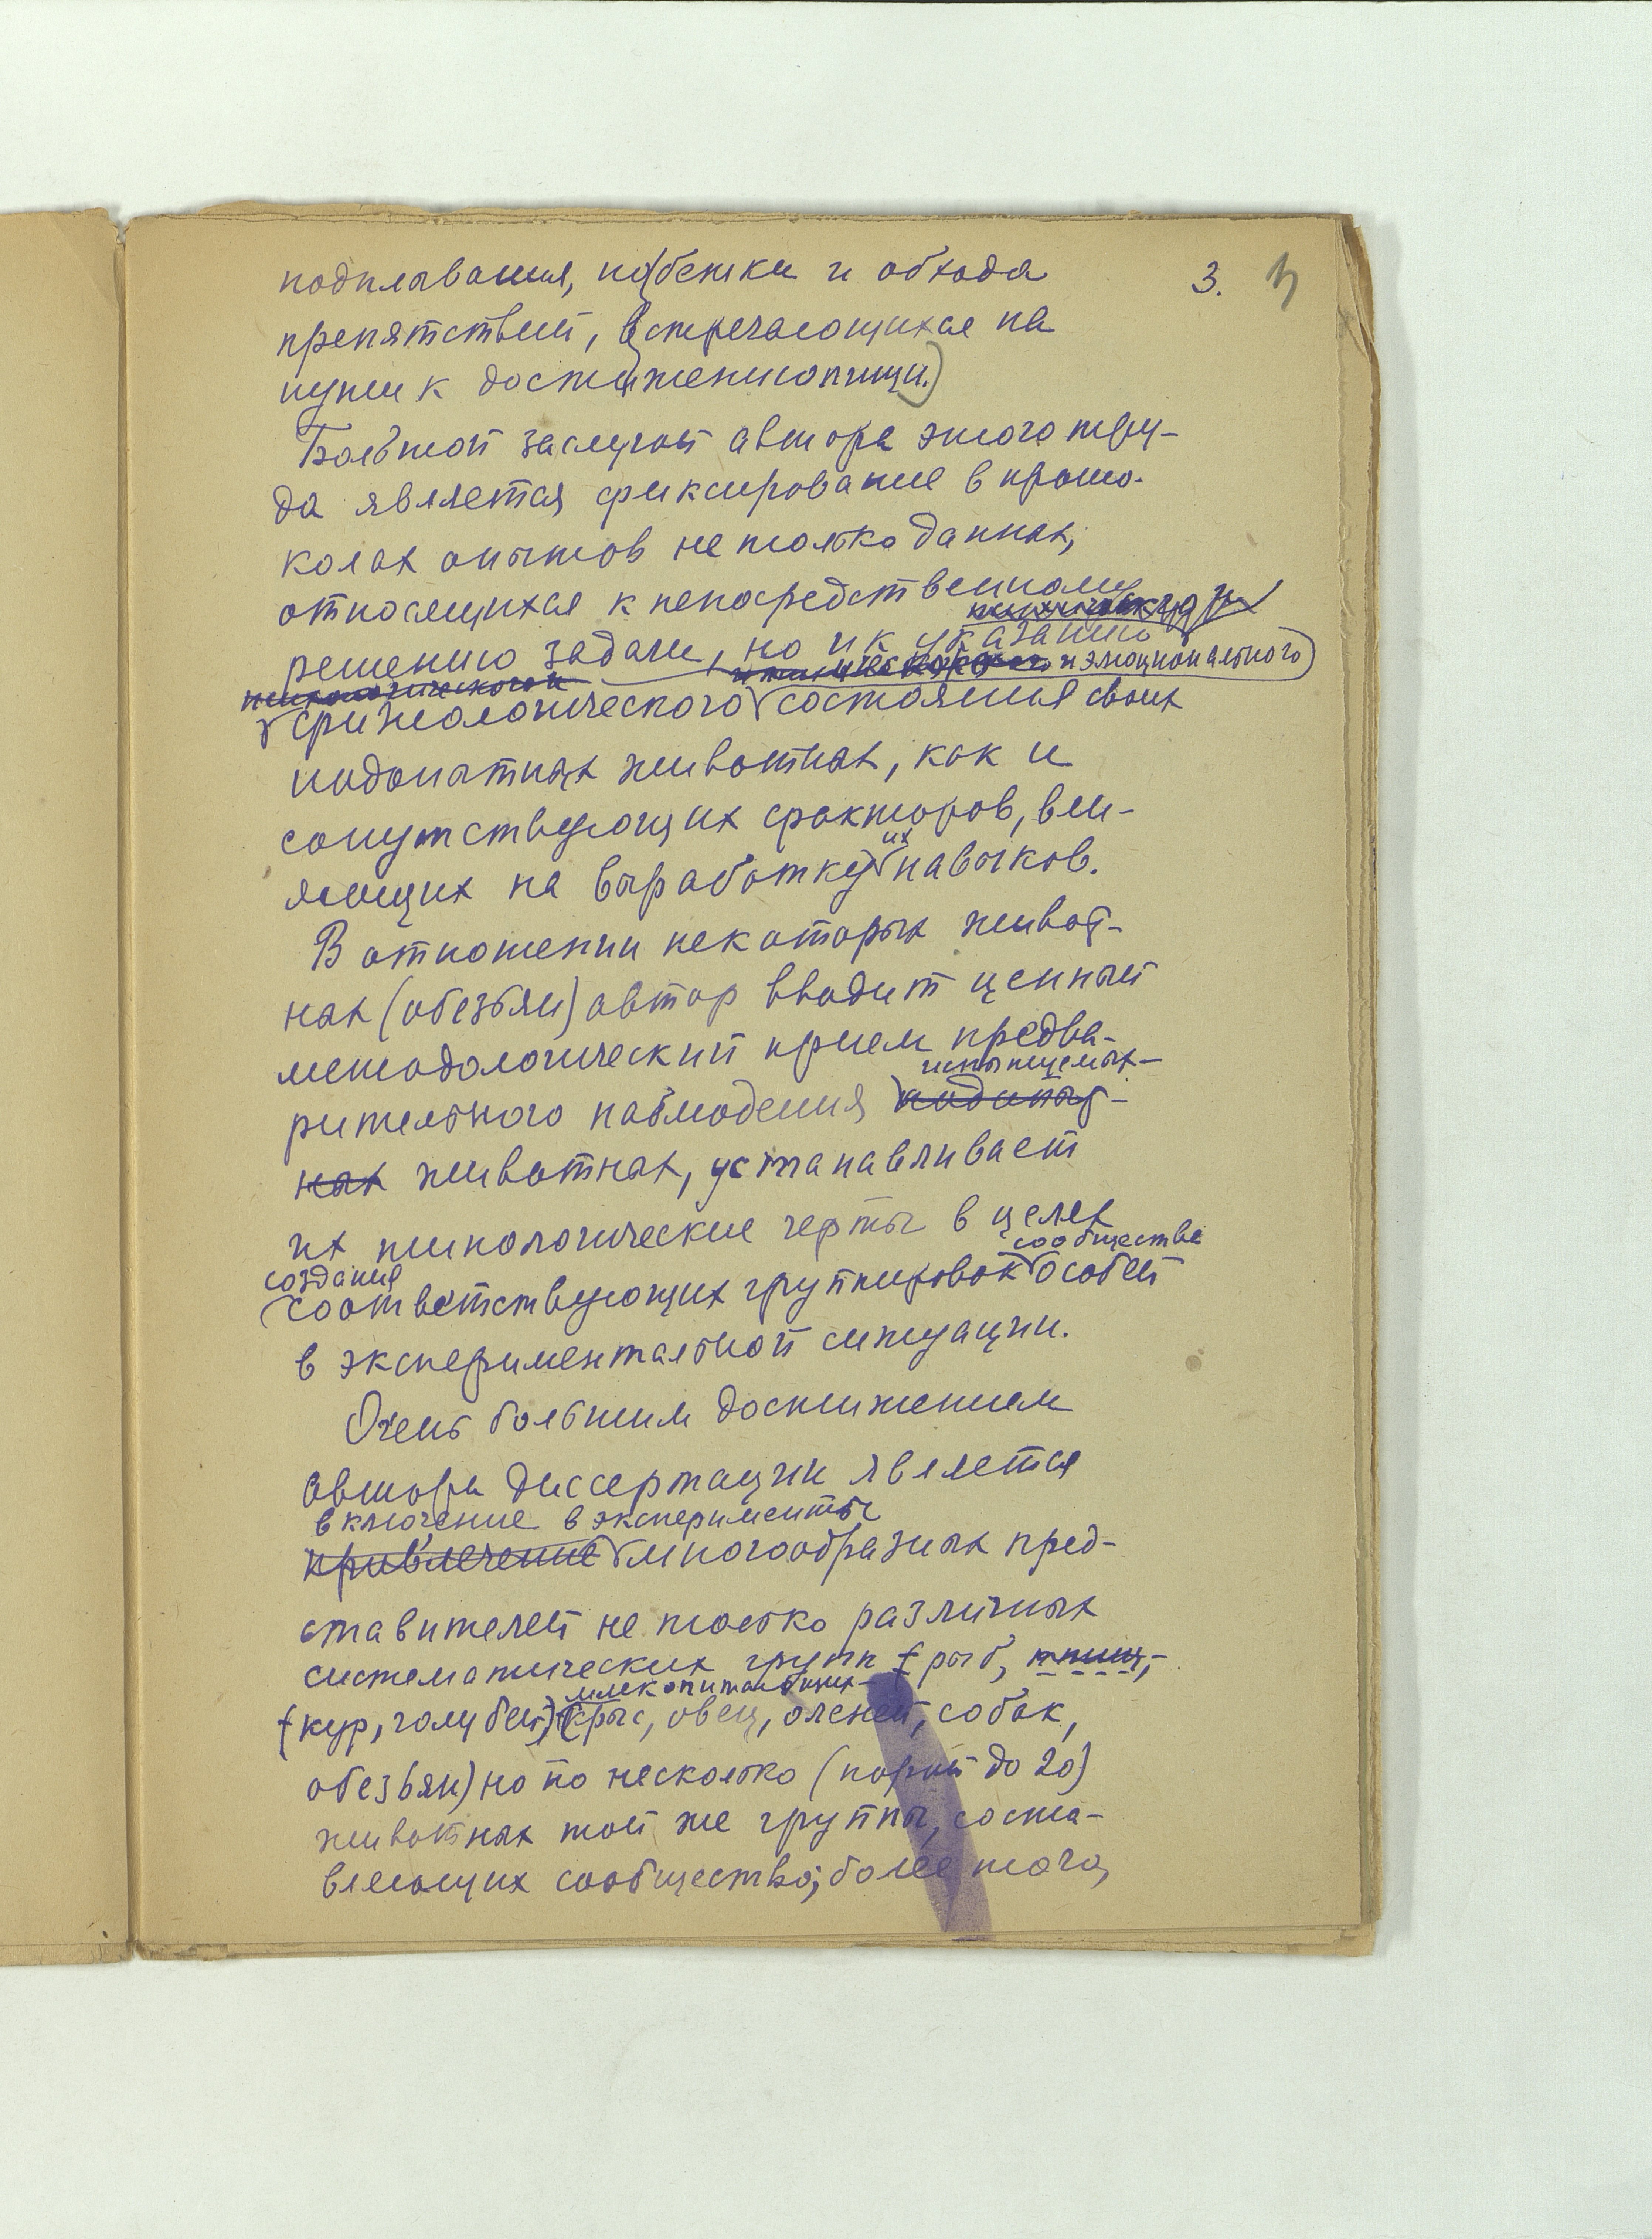 подплывания, побежки и обхода
3. 3
препятствий, встречающихся на
пути к достижению пищи.)
Большой заслугой автора этого тру-
да является фиксирование в прото-
колах опытов не только данных,
относящихся к непосредственному
решению задачи, но и к указанию
и эмоционального
психологического и
физиологического состояния своих
подопытных животных, как и
сопутствующих факторов, вли-
их
яющих на выработку навыков.
В отношении некоторых живот-
ных (обезьян) автор вводит ценный
методологический прием предва-
испытуемых
рительного наблюдения подопыт-
ных животных, устанавливает
их типологические черты в целях
создания сообщества
соответствующих группировок особей
в экспериментальной ситуации.
Очень большим достижением
автора диссертации является
включение в эксперименты
привлечение многообразных пред-
ставителей не только различных
систематических групп (рыб, птиц,
млекопитающих
(кур, голубей) (крыс, овец, оленей, собак,
обезьян) но по несколько (порой до 20)
животных той же группы, соста-
вляющих сообщество; более того,